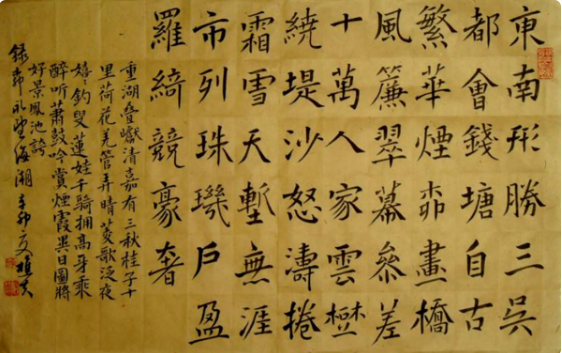 東南形勝三吳
都會錢塘自古
繁華煙柳畫橋
風簾翠幕參差
十萬人家雲樹
繞堤沙怒濤捲
霜雪天塹無涯
市列珠璣戶盈
羅綺競豪奢
重湖叠巘清嘉有三秋桂子十
里荷花羌管弄晴菱歌泛夜
嬉釣叟蓮娃千騎擁高牙乘
醉听蕭鼓吟賞煙霞異日圖將
好景鳳池誇
錄柳永望海潮辛卯夏